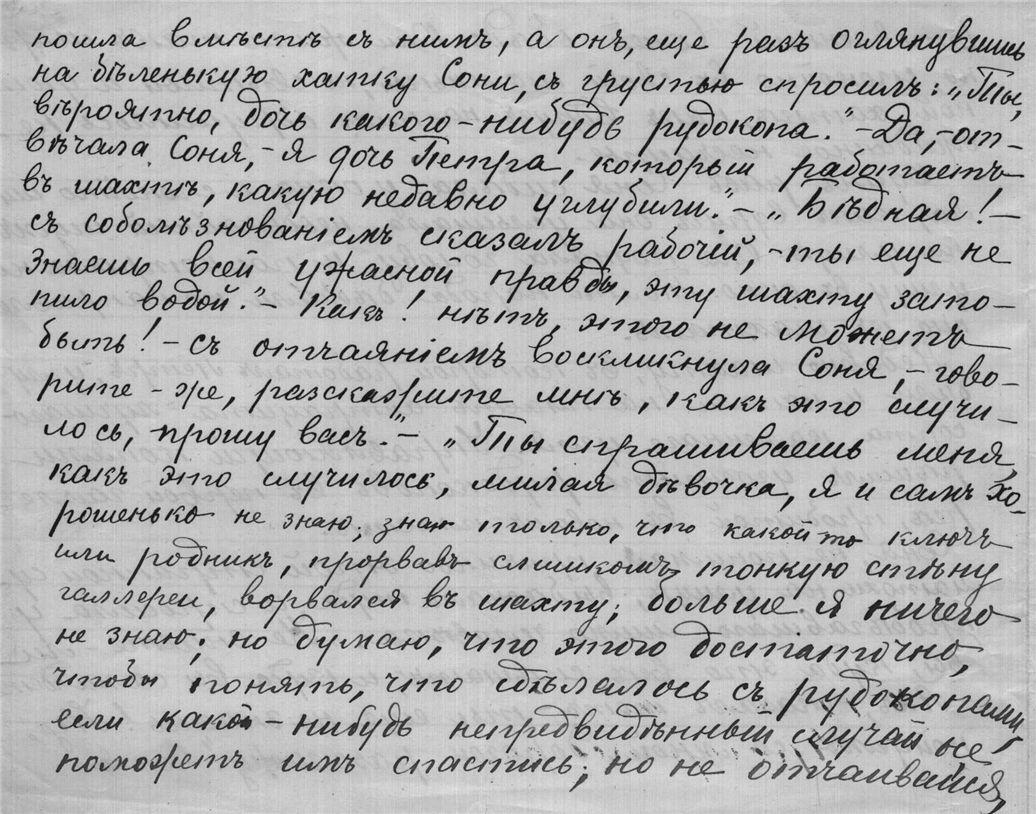 пошла вмѣстѣ съ нимъ, а онъ, еще разъ оглянувшись
на бѣленькую хатку Сони, съ грустью спросилъ: „Ты,
вѣроятно, дочь какого-нибудь рудокопа.“ – Да, – от-
вѣчала Соня, – я дочь Петра, который работаетъ
въ шахтѣ, какую недавно углубили.“ – „Бѣдная! –
съ соболѣзнованіемъ сказалъ рабочій, – ты еще не
знаешь всей ужасной правды, эту шахту зато-
пило водой.“ – Какъ! нѣтъ, этого не можетъ
быть! – съ отчаяніемъ воскликнула Соня, – гово-
рите-же, разскажите мнѣ, какъ это случи-
лось, прошу васъ.“ – „Ты спрашиваешь меня,
какъ это случилось, милая дѣвочка, я и самъ хо-
рошенько не знаю; знаю только, что какой то ключъ
или родникъ, прорвавъ слишкомъ тонкую стѣну
галлереи, ворвался въ шахту; больше я ничего
не знаю; но думаю, что этого достаточно,
чтобы понять, что сдѣлалось съ рудокопами,
если какой-нибудь непредвидѣнный случай не
поможетъ имъ спастись; но не отчаивайся,